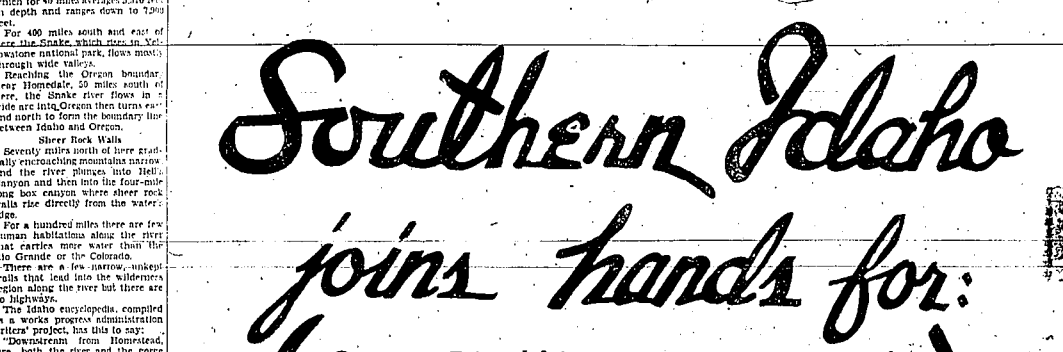 which for 40 miles averages 5,510 feet
n depth and ranges down to 7,900
eet.
For 400 miles south and east of
ere the Snake, which rises in Yel-
owstone national park, flows mostly
hrough wide valleys.
Reaching the Oregon boundary
ear Homedale, 50 miles south of
ere, the Snake river flows in a
ide arc into Oregon then turns
nd north to form the boundary line
etween Idaho and Oregon.
Sheer Rock Walls
Seventy miles north of here grad-
ally encroaching mountains narrow
nd the river plunges into Hell's
anyon and then into the four-mile
ong box canyon where sheer rock
alls rise directly from the water's
dge.
For a hundred miles there are few
uman habitations along the river
hat carries more water than the
io Grande or the Colorado.
There are a few narrow, unkept
rails that lead into the wilderness
egion along the river but there are
o highways.
The Idaho encyclopedia, compiled
s a works progress administration
riters' project, has this to say:
"Downstream from Homestead,
re, both the river and the gorge
Southern Idaho
joins hands for: